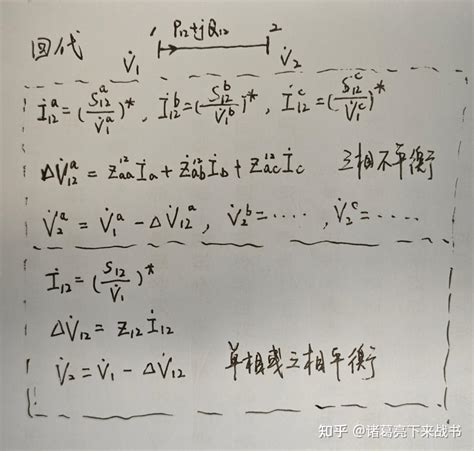 回代 V̇₁ 1 P₁₂+jQ₁₂ 2 V̇₂
İ₁₂ᵃ=(Ṡ₁₂ᵃ/V̇₁ᵃ)*, İ₁₂ᵇ=(Ṡ₁₂ᵇ/V̇₁ᵇ)*, İ₁₂ᶜ=(Ṡ₁₂ᶜ/V̇₁ᶜ)*
ΔV̇₁₂ᵃ = Zₐₐ¹² İₐ + Żₐb¹² İb + Zₐc¹² İc 三相不平衡
V̇₂ᵃ = V̇₁ᵃ - ΔV̇₁₂ᵃ, V̇₂ᵇ=····, V̇₂ᶜ=····
İ₁₂=(Ṡ₁₂/V̇₁)*
ΔV̇₁₂ = Z₁₂ İ₁₂
V̇₂ = V̇₁ - ΔV̇₁₂ 单相或三相平衡
知乎 @诸葛亮下来战书